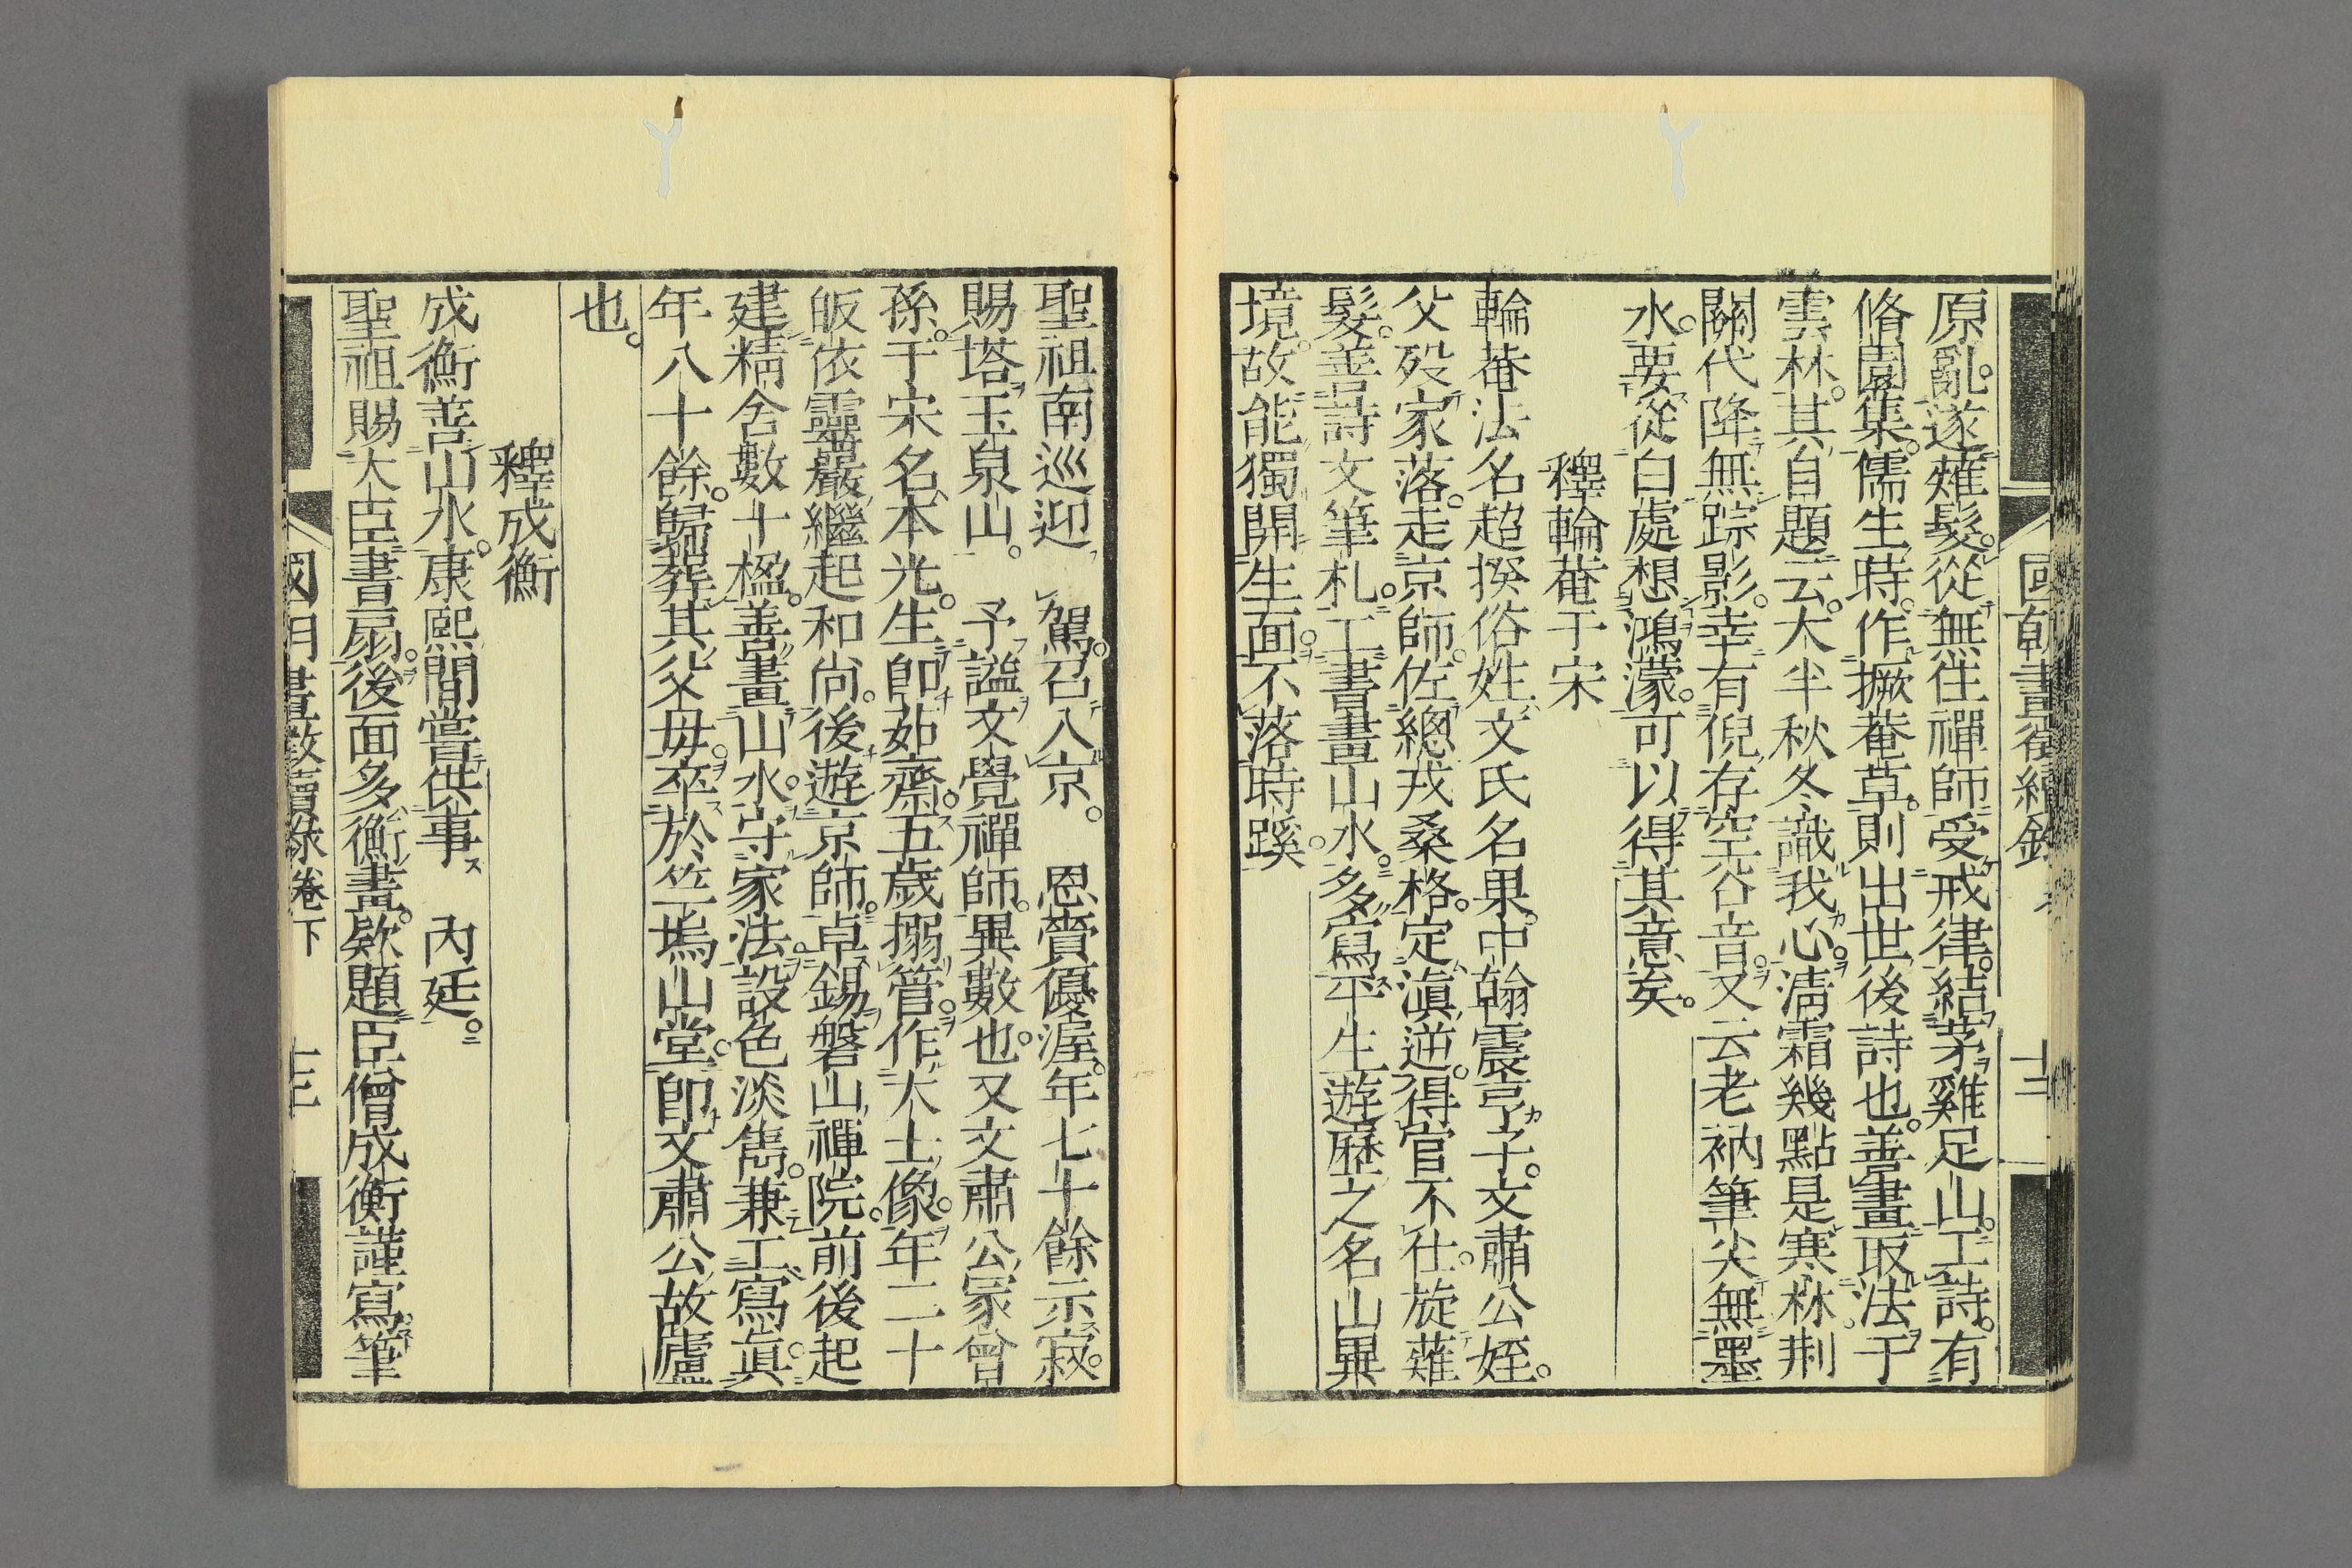 原亂。遂薙髮。從無住禪師受戒律。結茅雞足山。工詩。有
脩園集。儒生時。作橛菴草。則出世後詩也。善畫取法于
雲林。其自題云。大半秋冬識我心。清霜幾點是寒林。荆
關代降無踪影。幸有倪存空谷音。又云老衲筆尖無墨
水。要從白處想鴻濛。可以得其意矣。
釋輪菴于宋
輪菴法名超揆俗姓文氏名果。中翰震亨子。文肅公姪。
父歿家落。走京師。佐總戎桑格。定滇逆。得官不仕。旋薙
髮。善詩文筆札。工書畫山水。多寫平生遊歷之名山異
境。故能獨開生面。不落時蹊。
聖祖南巡迎 駕。召入京。 恩賚優渥。年七十餘示寂。
賜塔玉泉山。 予諡文覺禪師。異數也。又文肅公冢曾
孫。于宋名本光。生卽茹齋。五歲搦管。作大士像。年二十
皈依靈巖繼起和尙。後遊京師。卓錫磐山禪院。前後起
建精舍數十楹。善畫山水。守家法。設色淡雋。兼工寫眞。
年八十餘。歸葬其父母。卒於竺塢山堂。卽文肅公故廬
也。
釋成衡
成衡善山水。康熙間嘗供事 內廷。
聖祖賜大臣書扇。後面多衡畫。欵題臣僧成衡謹寫。筆
卷下